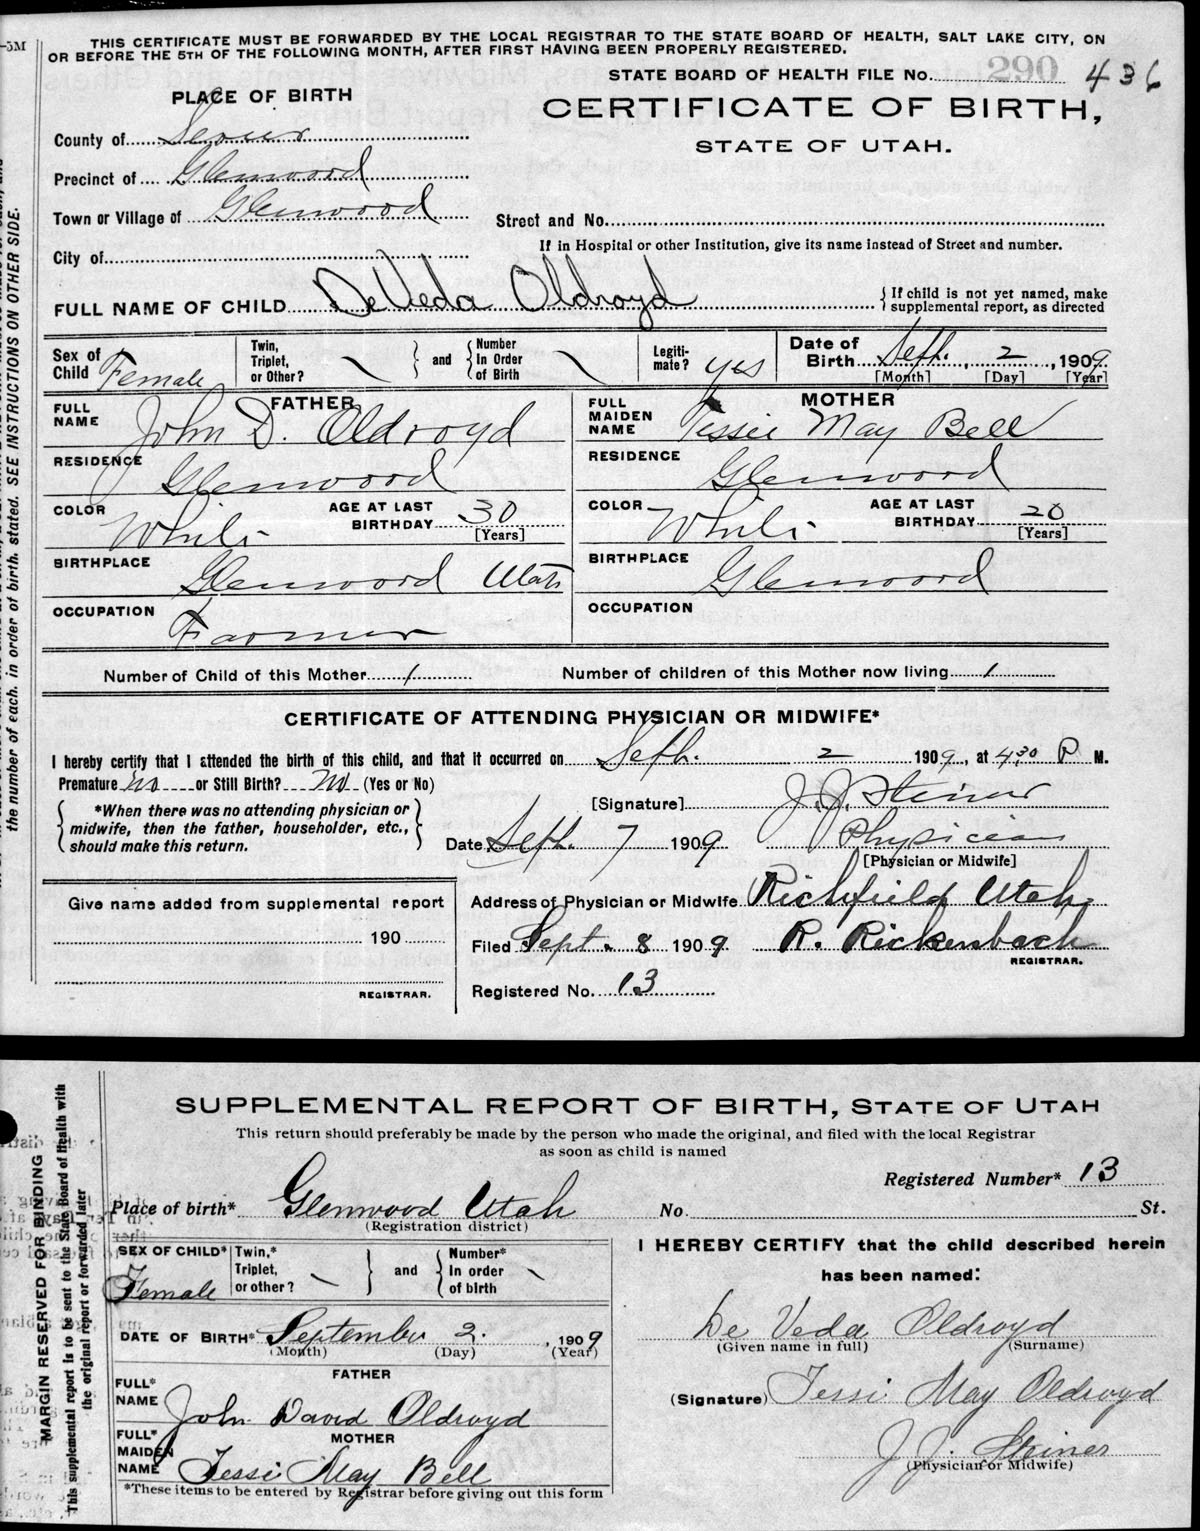 -5M
THIS CERTIFICATE MUST BE FORWARDED BY THE LOCAL REGISTRAR TO THE STATE BOARD OF HEALTH, SALT LAKE CITY, ON
OR BEFORE THE 5TH OF THE FOLLOWING MONTH, AFTER FIRST HAVING BEEN PROPERLY REGISTERED.
STATE BOARD OF HEALTH FILE No. 290 436
PLACE OF BIRTH
CERTIFICATE OF BIRTH,
STATE OF UTAH.
County of Sevier
Precinct of Glenwood
Town or Village of Glenwood
Street and No.
If in Hospital or other Institution, give its name instead of Street and number.
City of
FULL NAME OF CHILD DeVeda Oldroyd
If child is not yet named, make
supplemental report, as directed
Sex of Child Female
Twin, Triplet, or Other? \ and Number In Order of Birth \
Legiti-mate? yes
Date of Birth Sept. 2, 1909
[Month] [Day] [Year]
FATHER
FULL NAME John D. Oldroyd
MOTHER
FULL MAIDEN NAME Tessie May Bell
RESIDENCE Glenwood
RESIDENCE Glenwood
COLOR White AGE AT LAST BIRTHDAY 30 [Years]
COLOR White AGE AT LAST BIRTHDAY 20 [Years]
BIRTHPLACE Glenwood Utah
BIRTHPLACE Glenwood
OCCUPATION Farmer
OCCUPATION
Number of Child of this Mother 1 Number of children of this Mother now living 1
CERTIFICATE OF ATTENDING PHYSICIAN OR MIDWIFE*
I hereby certify that I attended the birth of this child, and that it occurred on Sept. 2 1909, at 4:30 P M.
Premature no or Still Birth? no (Yes or No)
*When there was no attending physician or
midwife, then the father, householder, etc.,
should make this return.
[Signature] J. J. Steiner
Date Sept. 7 1909 Physician
[Physician or Midwife]
Give name added from supplemental report
190
REGISTRAR.
Address of Physician or Midwife Richfield Utah.
Filed Sept. 8 1909 R. Rickenbach
REGISTRAR.
Registered No. 13
the number of each, in order of birth, stated. SEE INSTRUCTIONS ON OTHER SIDE.
SUPPLEMENTAL REPORT OF BIRTH, STATE OF UTAH
This return should preferably be made by the person who made the original, and filed with the local Registrar
as soon as child is named
Registered Number* 13
Place of birth* Glenwood Utah No. St.
(Registration district)
SEX OF CHILD* Female
Twin,* Triplet, or other? \ and Number* In order of birth \
DATE OF BIRTH* September 2. , 1909
(Month) (Day) (Year)
FATHER
FULL* NAME John David Oldroyd
MOTHER
FULL* MAIDEN NAME Tessie May Bell
*These items to be entered by Registrar before giving out this form
I HEREBY CERTIFY that the child described herein
has been named:
De Veda Oldroyd
(Given name in full) (Surname)
(Signature) Tessi May Oldroyd
J. J. Steiner
(Physician or Midwife)
MARGIN RESERVED FOR BINDING
This supplemental report is to be sent to the State Board of Health with
the original report or forwarded later